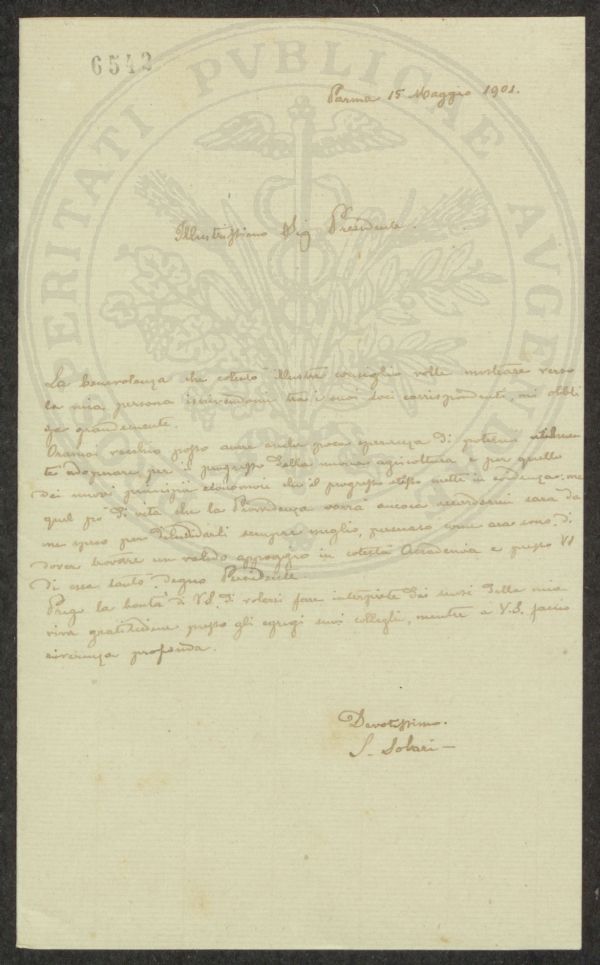 6542
PROSPERITATI PVBLICAE AVGENDAE
Parma 15 Maggio 1901.
Illustrissimo Sig Presidente.
La benevolenza che cotesto illustre consiglio volle mostrare verso
la mia persona iscrivendomi tra i suoi soci corrispondenti, mi obbli
ga grandemente.
Oramai vecchio posso avere anche poca speranza di potermi utilmen
te adoperare per il progresso della nuova agricoltura e per quello
dei nuovi principii economici che il progresso stesso mette in evidenza; ma
quel pò di vita che la Provvidenza vorrà ancora accordarmi sarà da
me speso per delucidarli sempre meglio, persuaso come ora sono, di
dover trovare un valido appoggio in cotesta Accademia e presso VS
di essa tanto degno Presidente.
Prego la bontà di V.S. di volersi fare interprete dei sensi della mia
viva gratitudine presso gli egregi suoi colleghi, mentre a V.S. faccio
riverenza profonda.
Devotissimo.
S. Solari